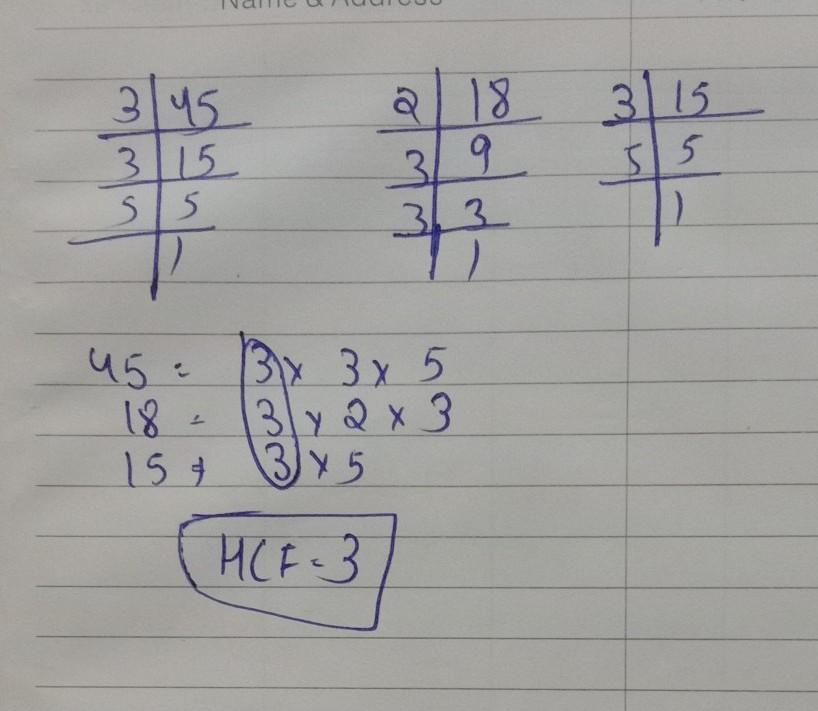 Name & Address
3 | 45
3 | 15
5 | 5
1
2 | 18
3 | 9
3 | 3
1
3 | 15
5 | 5
1
45 = 3 × 3 × 5
18 = 3 × 2 × 3
15 = 3 × 5
HCF = 3